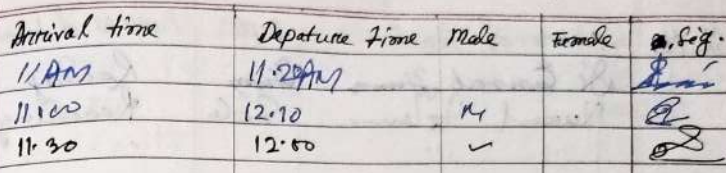 Arrival time Depature Time Male Female Sig.
11 AM 11.20AM
11.00 12.10 M
11.30 12.00 ✓